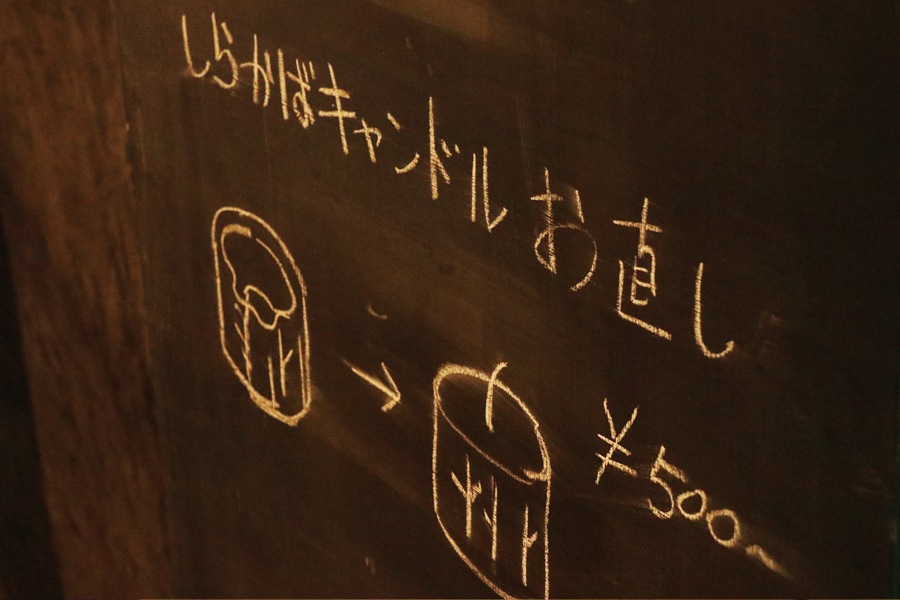 しらかばキャンドルお直し
¥500-